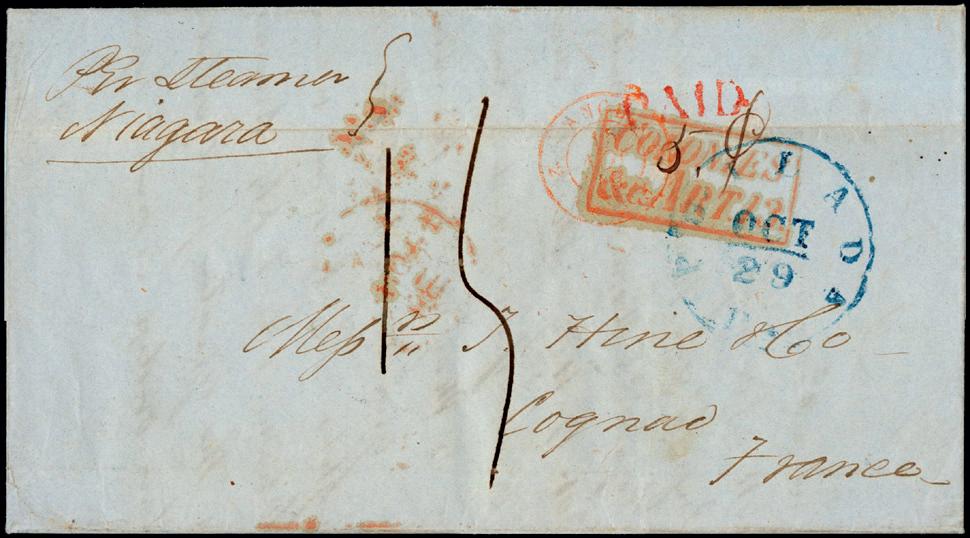 Per Steamer
Niagara
PAID
5
COLONIES
&c. ART. 13
OCT
29
15
Mess rs J. Hine & Co
Cognac
France